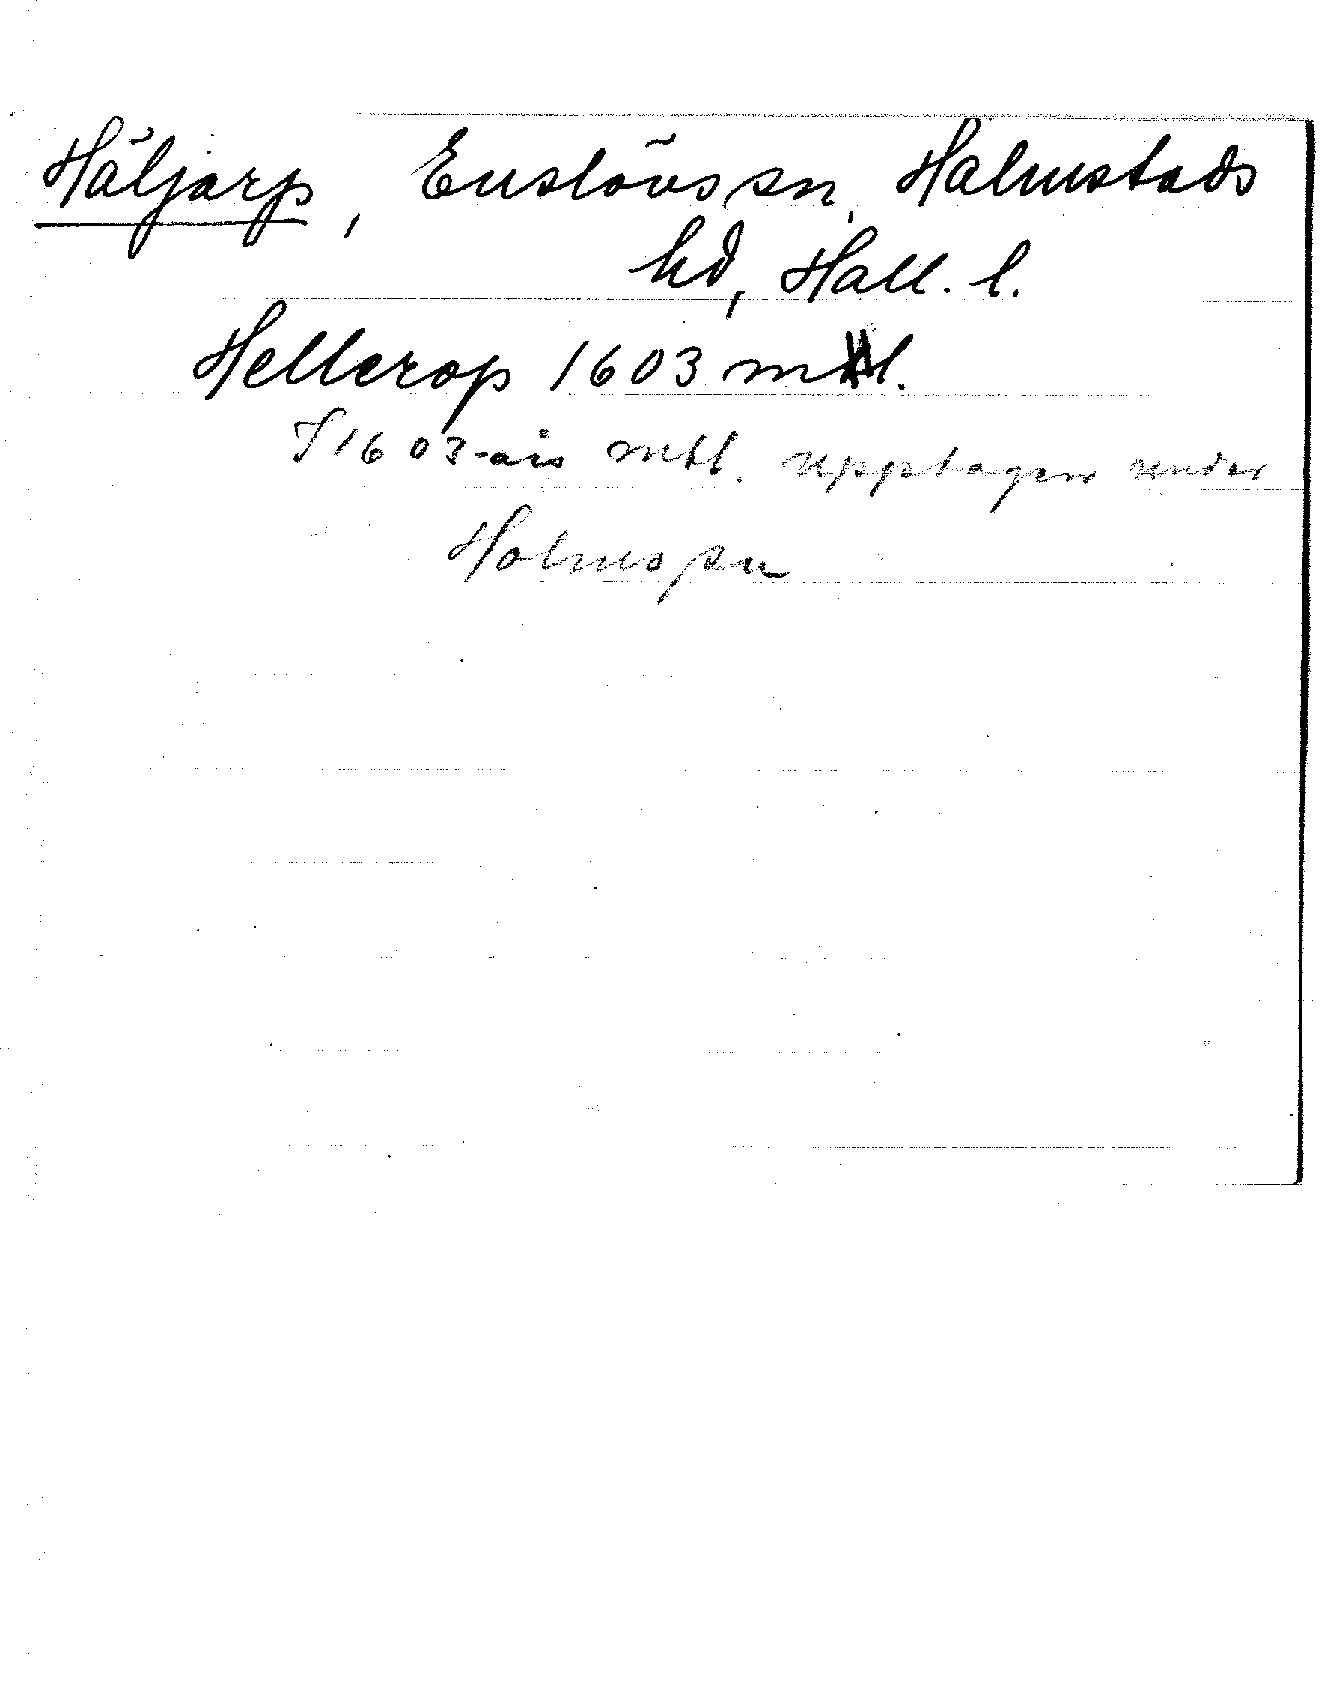 Häljarp, Enslövs sn, Halmstads
hd, Hall. l.
Hellerop 1603 mtl.
I 1603-års mtl. upptagen under
Holms sn